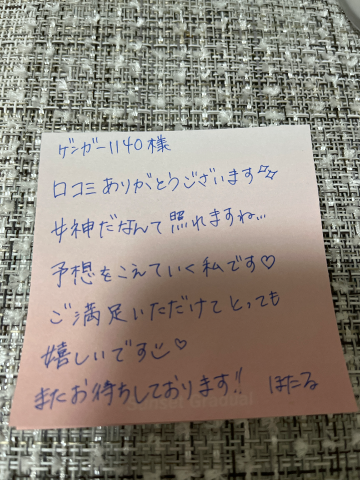 ゲンガー1140様
口コミありがとうございます✨
女神だなんて照れますね…
予想をこえていく私です♡
ご満足いただけてとっても
嬉しいです☺♡
またお待ちしております!! ほたる